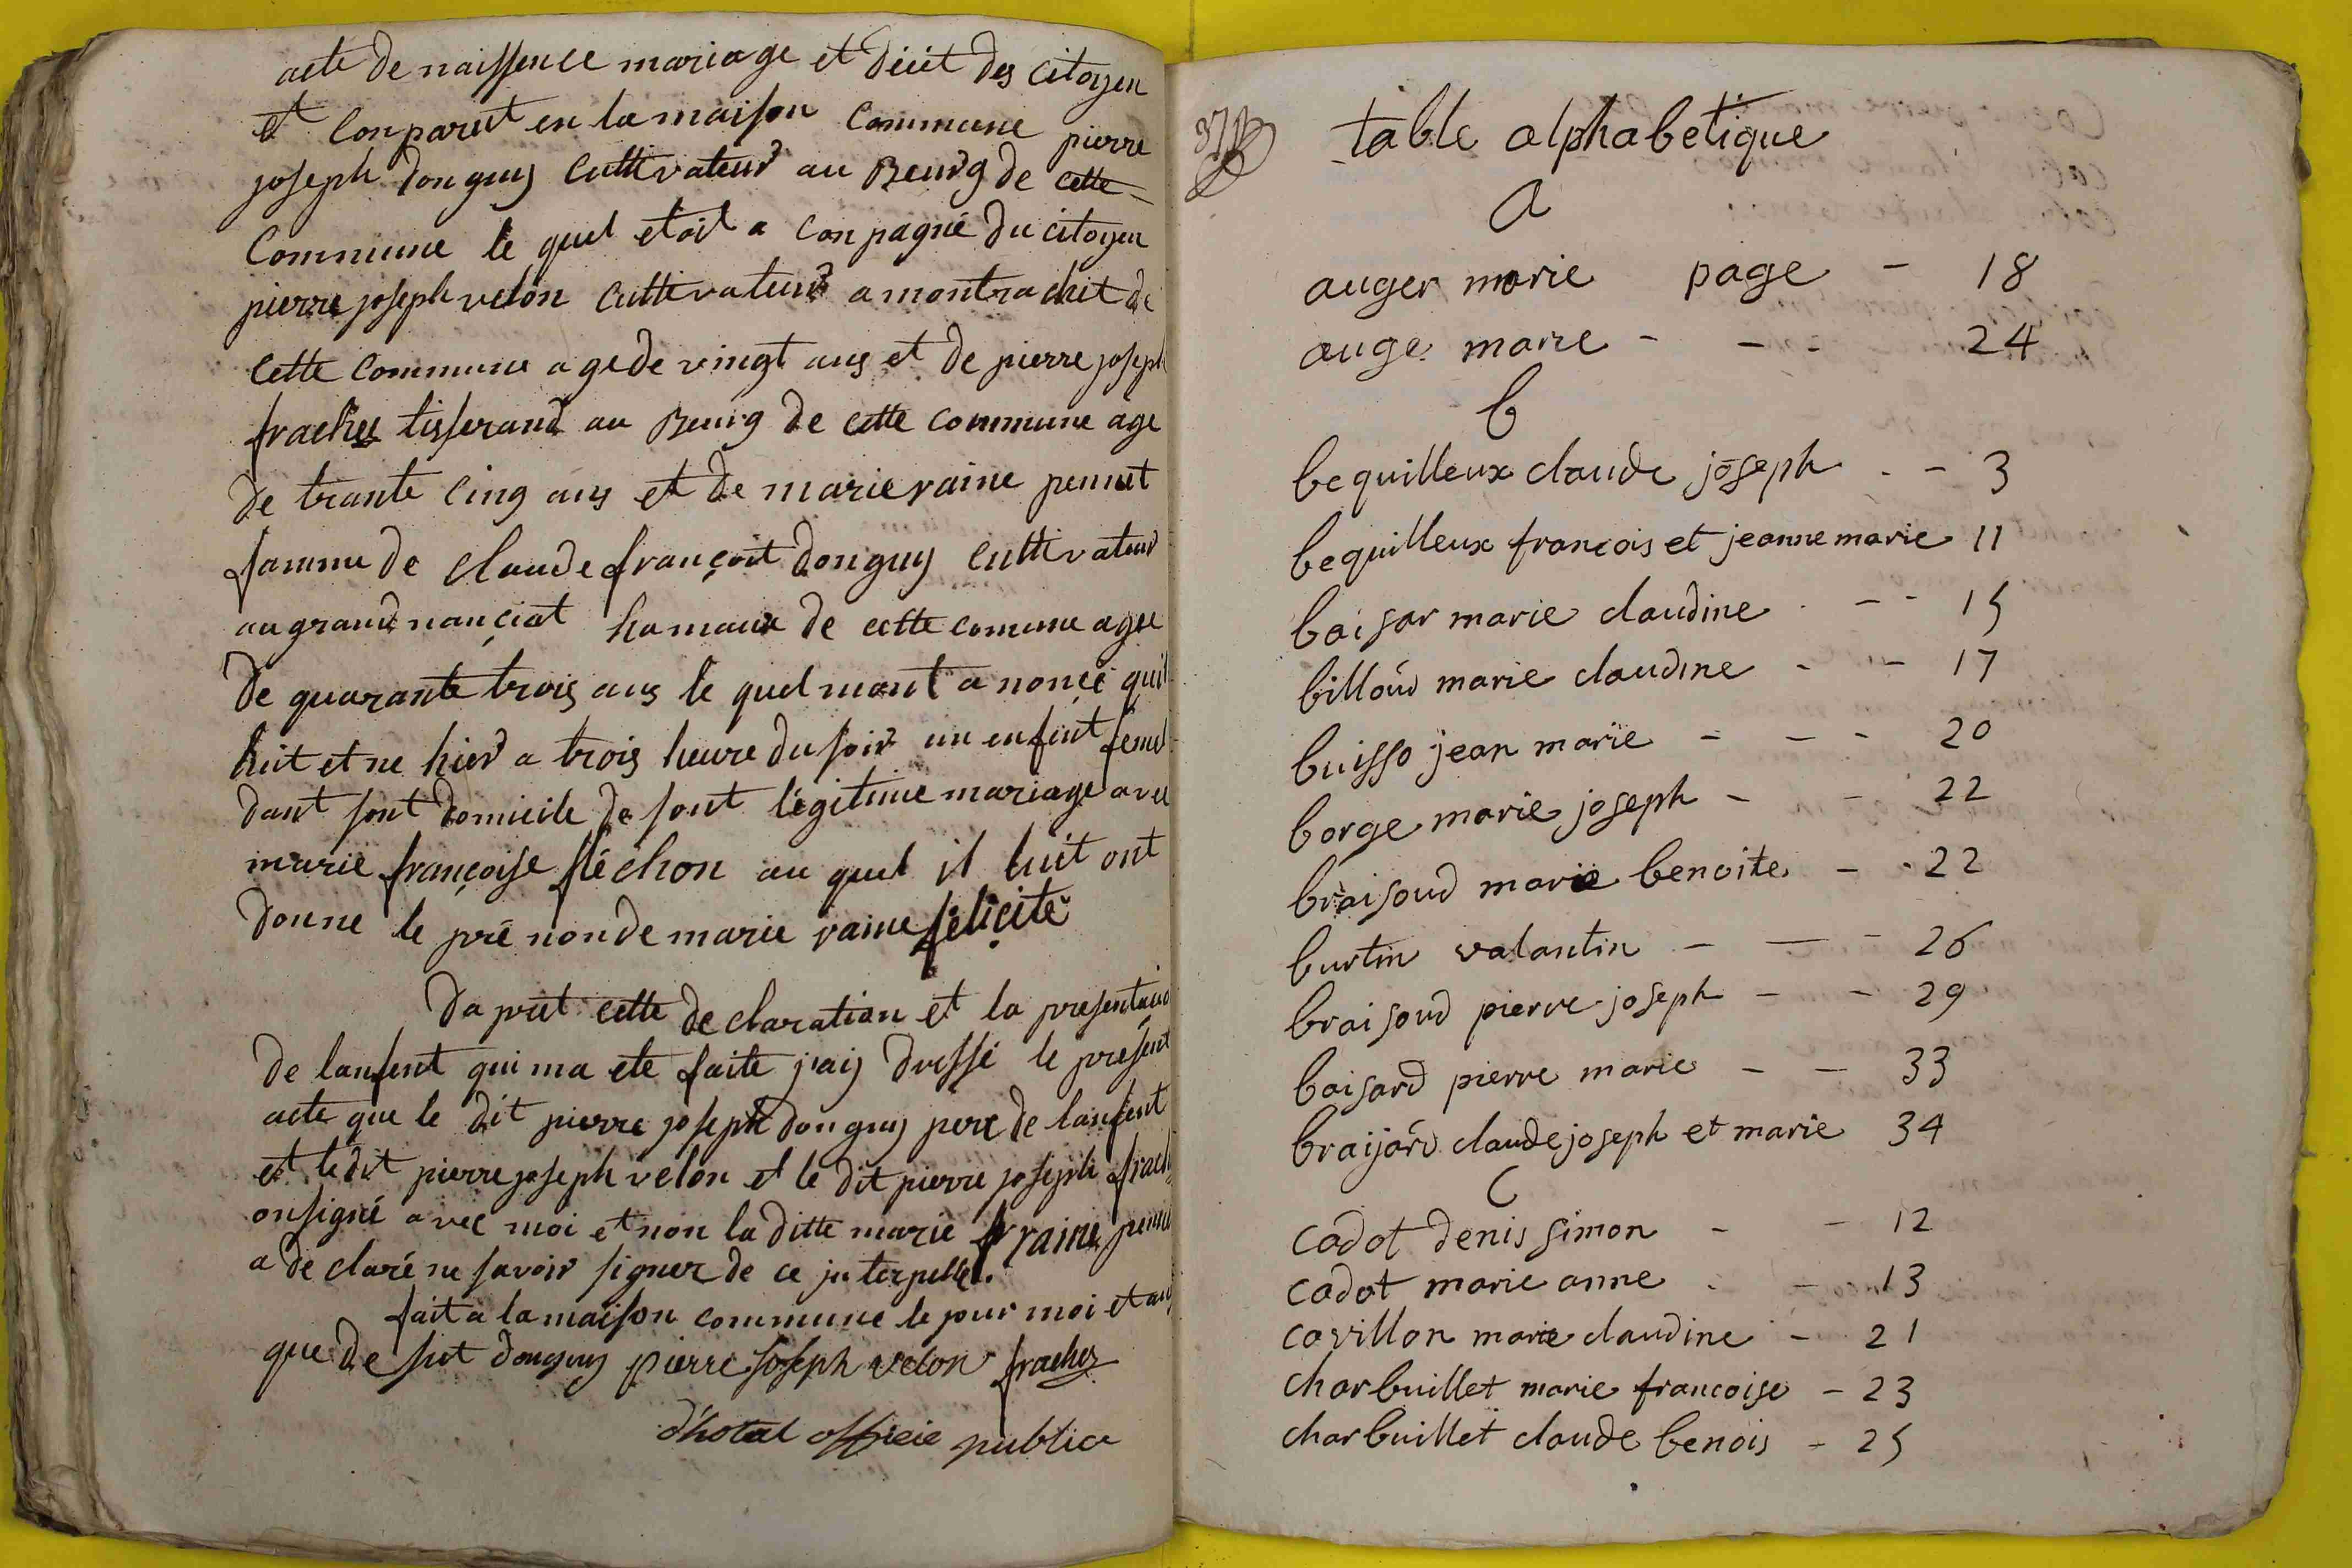 acte de naissence mariage et décét des citoyen
et Conparut en la maison Commune pierre
joseph donguy Cultivateur au Beurg de cette
Commune le quel etoit a Conpagné du citoyen
pierre joseph velon Cultivateur a montrachet de
cette Commune agede vingt ans et de pierre joseph
frachez tisserand au Beurg de cette commune age
de trante Cinq ans et de marie raine pennet
famme de Claude françoit donguy Cultivateur
au grand nanciat hamaux de cette comune agee
de quarante trois ans le quel mont a noncé quil
luit et ne hier a trois heure du soir un enfent femel
dant sont domicile de sont légitime mariage avec
marie françoise fléchon au quel il luit ont
donne le pré nonde marie raine félicité
Da prét cette declaration et la presentation
de lanfent qui ma ete faite j'aij dressé le présent
acte que le dit pierre joseph donguy pere de lanfent
et ledit pierre joseph velon et le dit pierre joseph frach
onsigné avec moi et non la ditte marie raine penne
a de claré ne savoir signer de ce juterpellet.
fait a la maison commune le jour moi et an
que de sut donguy pierre joseph velon frachez
d'hotal officie publice
37
table alphabetique
a
auger marie page - 18
auge marie - - - 24
b
bequilleux claude joseph - - 3
bequilleux francois et jeanne marie 11
boisar marie claudine - - 15
billoud marie claudine - - 17
buisso jean marie - - - 20
borge marie joseph - - 22
braisoud marie benoite - - 22
burtin valantin - - - 26
braisoud pierre joseph - - 29
boisard pierre marie - - 33
braijard claude joseph et marie 34
C
cadot denis simon - - 12
cadot marie anne - - 13
covillon marie claudine - 21
charbuillet marie francoise - 23
charbuillet claude benois - 25